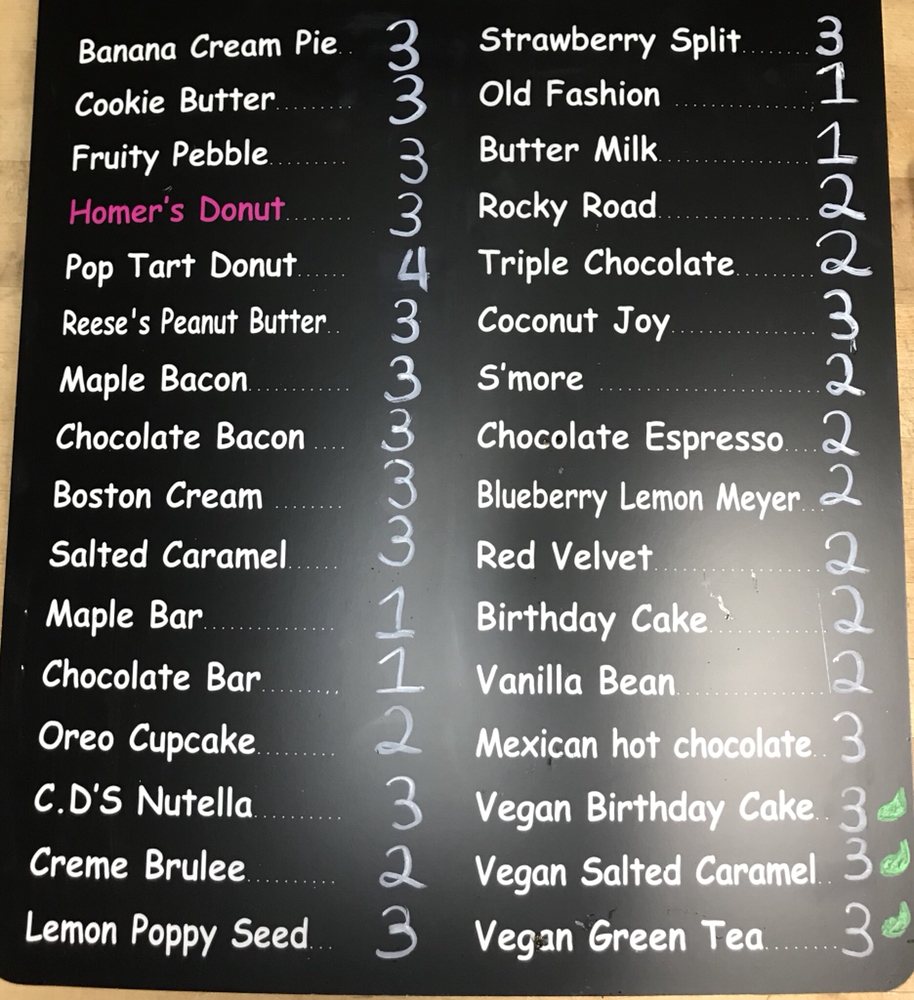 Banana Cream Pie.. 3
Cookie Butter.......... 3
Fruity Pebble.......... 3
Homer's Donut........ 3
Pop Tart Donut...... 4
Reese's Peanut Butter.. 3
Maple Bacon............. 3
Chocolate Bacon .... 3
Boston Cream ........ 3
Salted Caramel...... 3
Maple Bar............... 1
Chocolate Bar......... 1
Oreo Cupcake......... 2
C.D'S Nutella.......... 3
Creme Brulee.......... 2
Lemon Poppy Seed... 3
Strawberry Split....... 3
Old Fashion ............... 1
Butter Milk................ 1
Rocky Road................ 2
Triple Chocolate........ 2
Coconut Joy............... 3
S'more ....................... 2
Chocolate Espresso.... 2
Blueberry Lemon Meyer... 2
Red Velvet................. 2
Birthday Cake........... 2
Vanilla Bean............... 2
Mexican hot chocolate.. 3
Vegan Birthday Cake.. 3
Vegan Salted Caramel.. 3
Vegan Green Tea......... 3